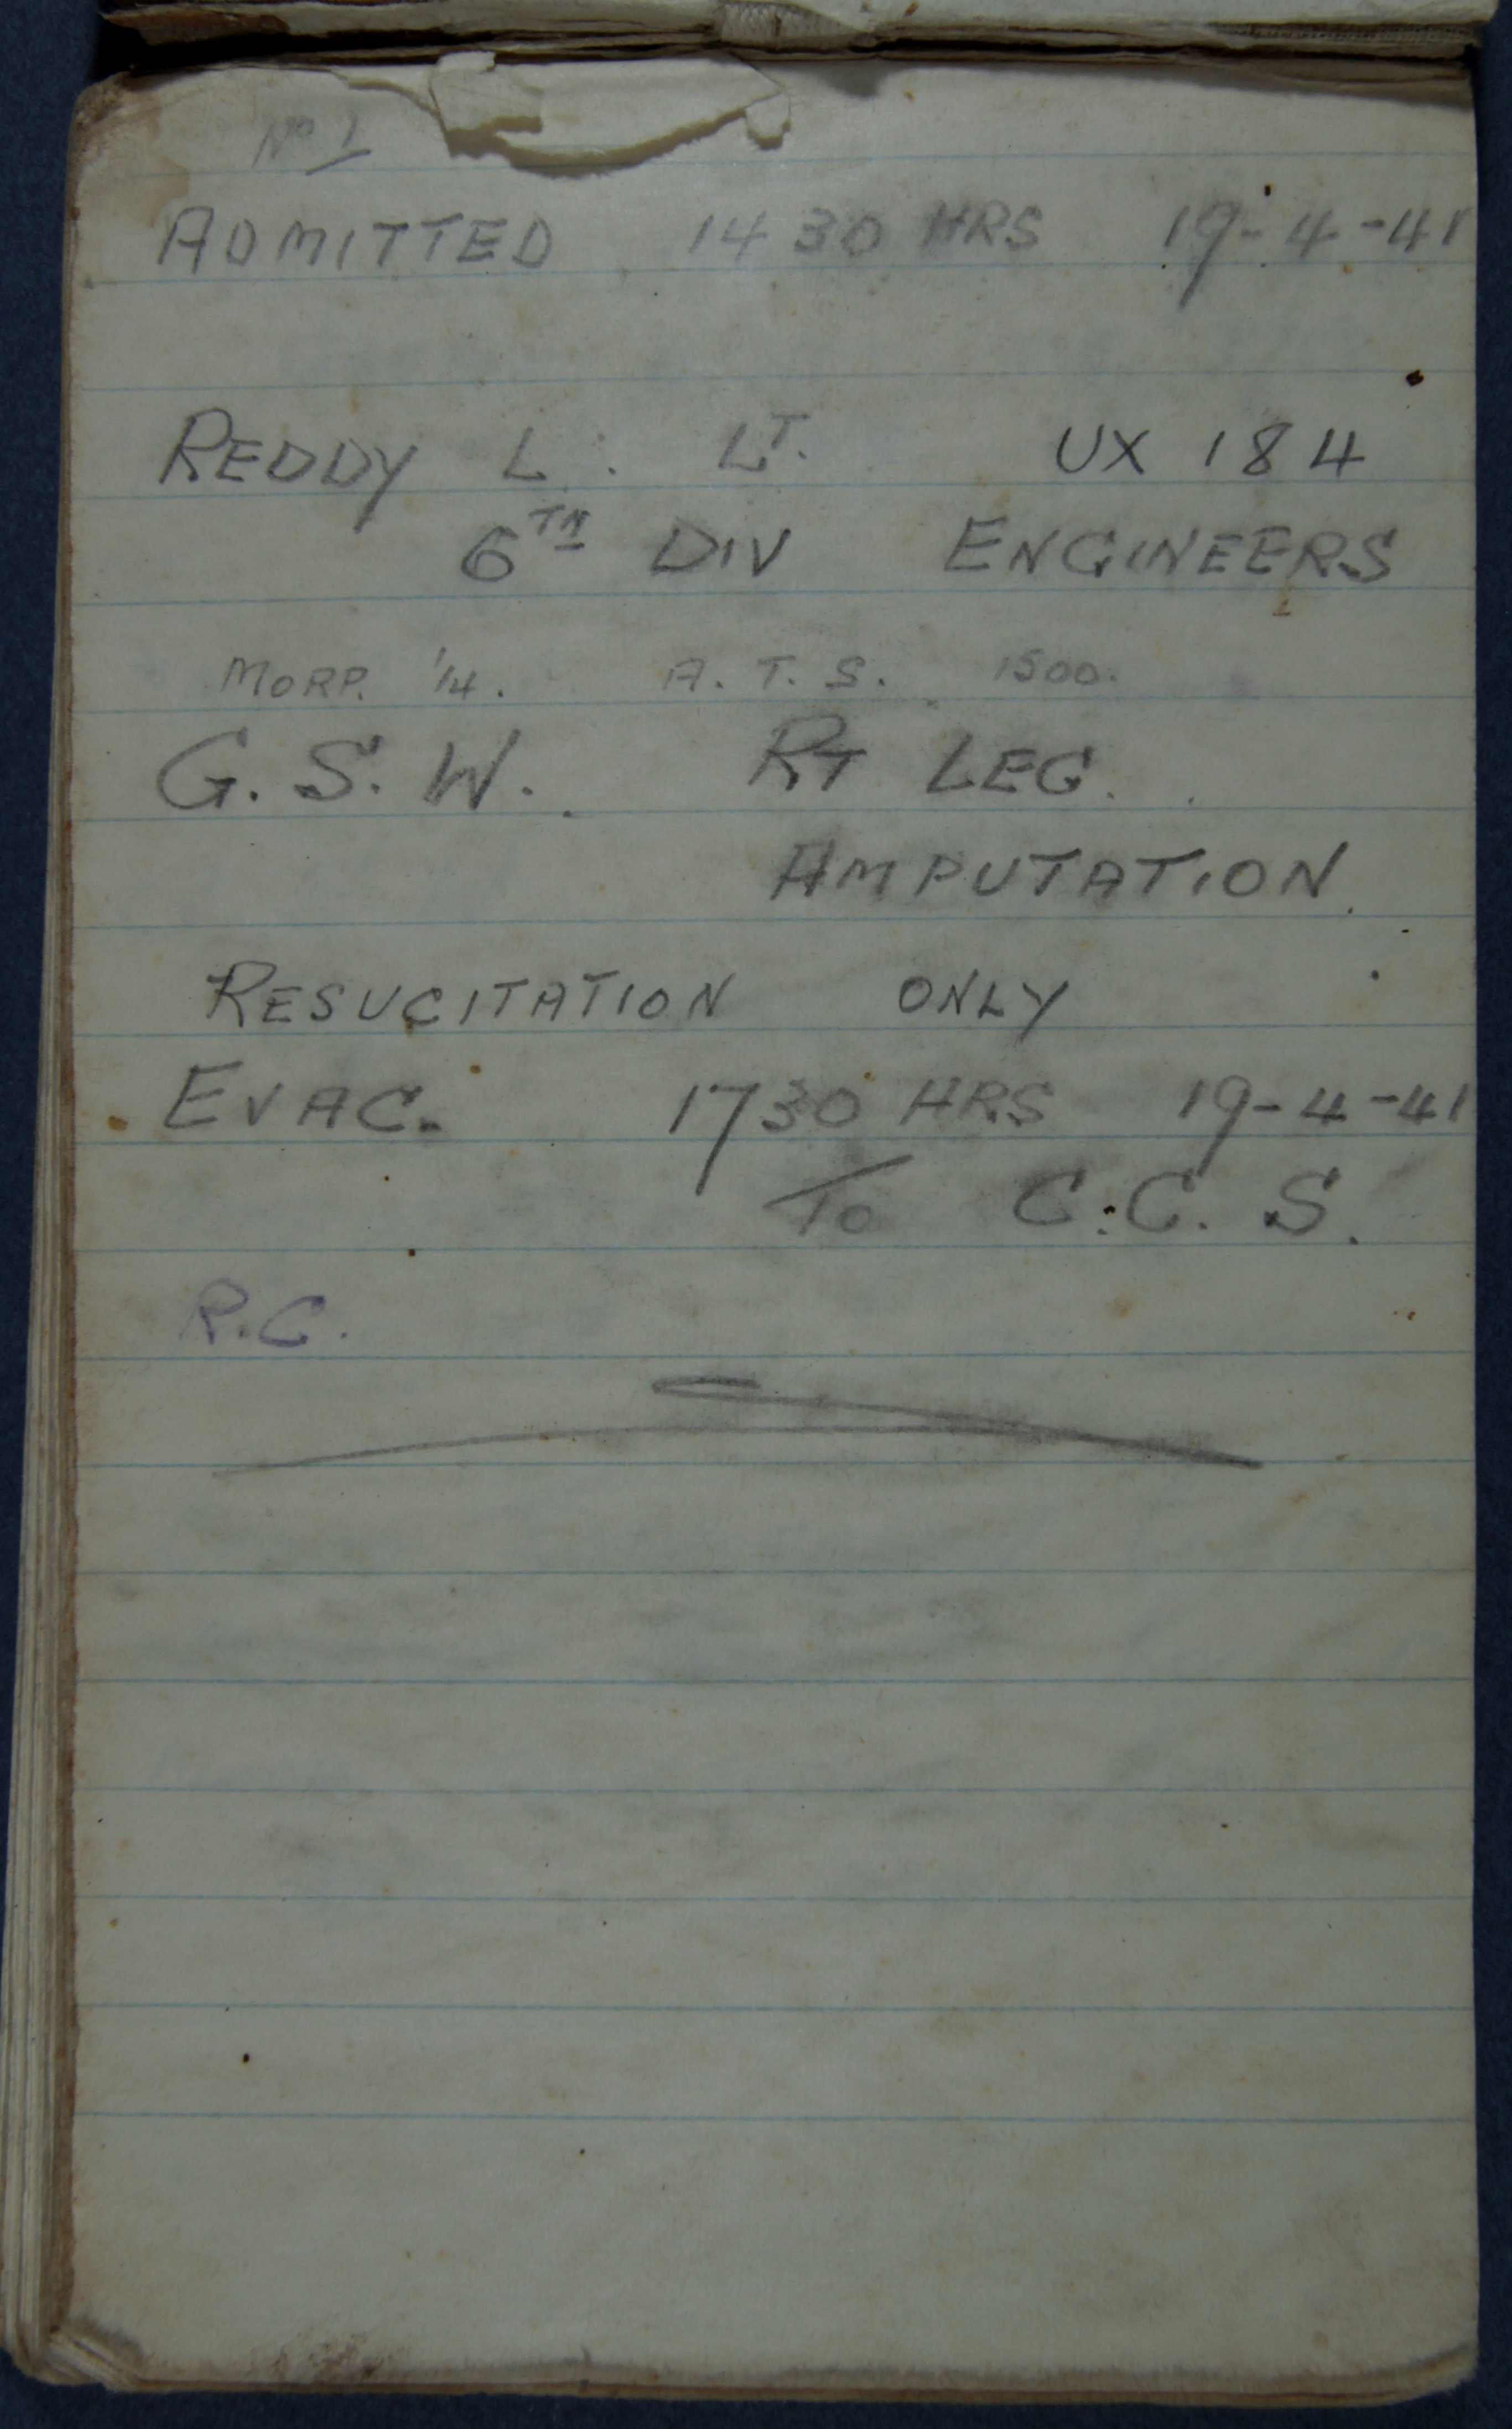 No 1
ADMITTED 1430 HRS 19-4-41
REDDY L. LT. UX 184
6TH DIV ENGINEERS
MORP. 1/4. A.T.S. 1500.
G.S.W. RT LEG.
AMPUTATION.
RESUCITATION ONLY
EVAC. 1730 HRS 19-4-41
To C.C.S.
R.C.